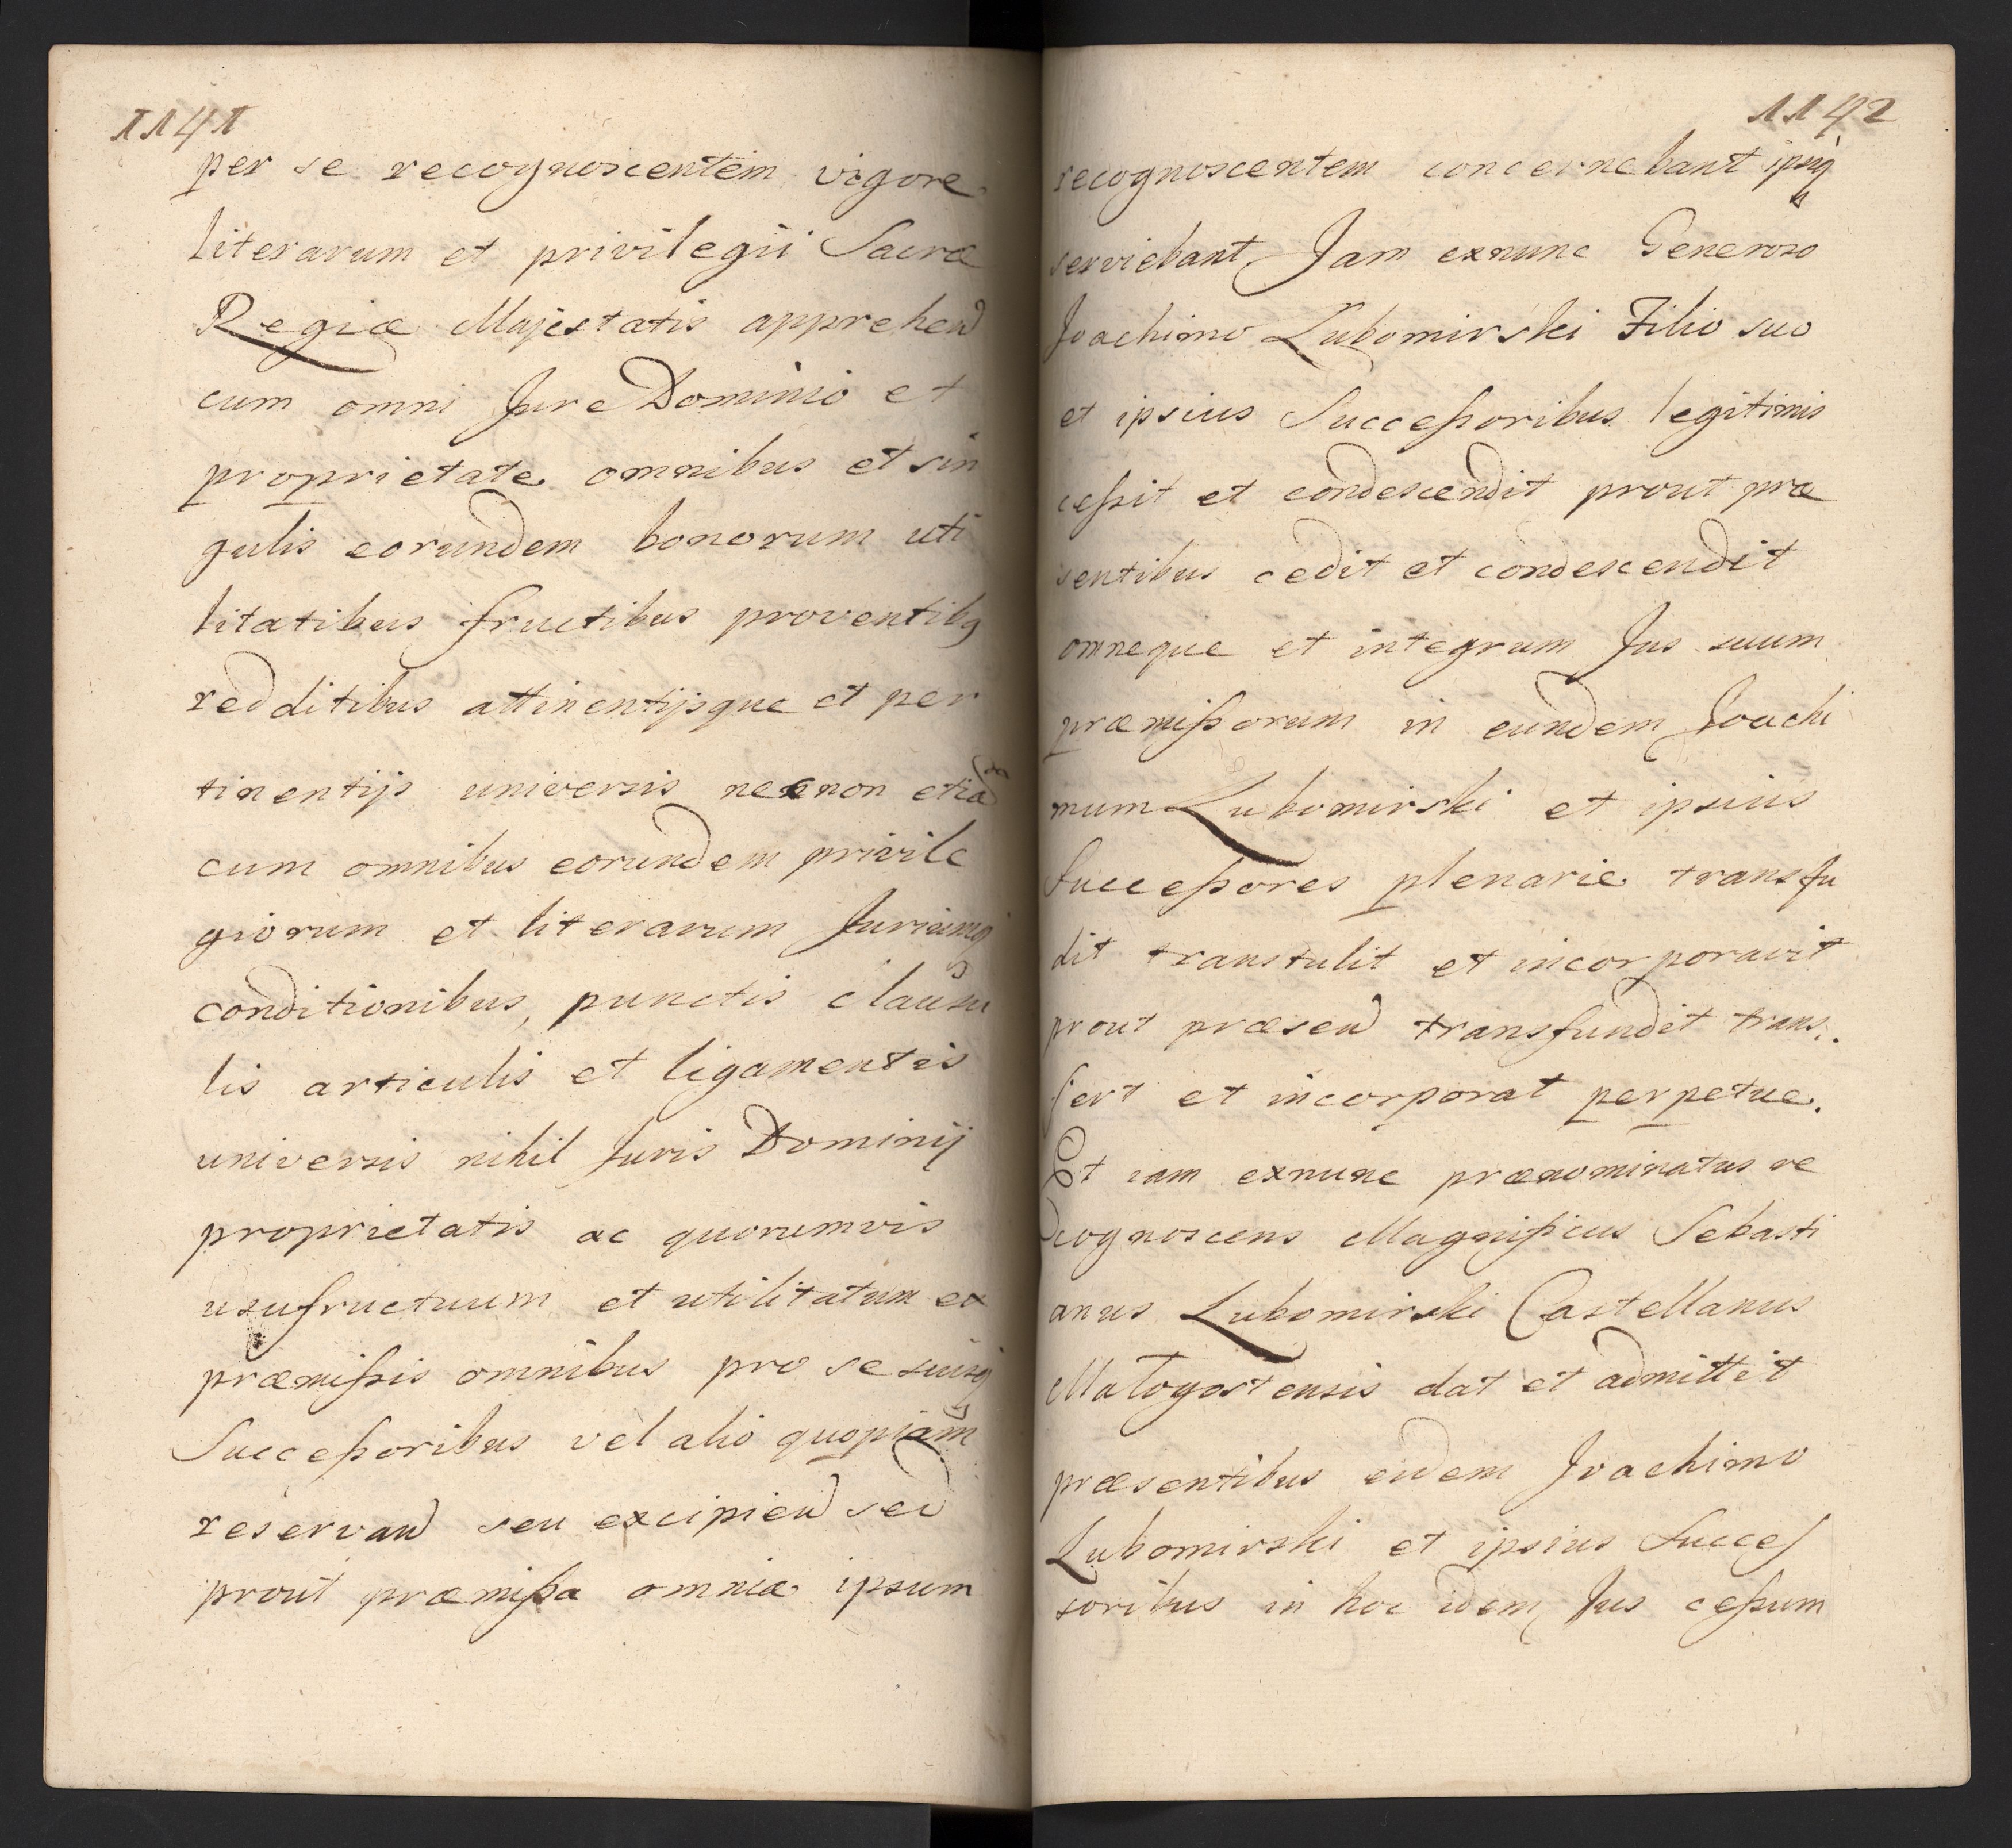 1141
per se recognoscentem vigore
literarum et privilegii Sacræ
Regiæ Majestatis apprehend
cum omni Jure Dominio et
proprietate omnibus et sin
gulis eorundem bonorum uti
litatibus fructibus proventibq
redditibus attinentijsque et per
tinentijs universis necnon etia
cum omnibus eorundem privile
giorum et literarum Juriumq
conditionibus, punctis clausu
lis articulis et ligamentis
universis nihil Juris Dominij
proprietatis ac quorumvis
usufructuum et utilitatum ex
præmißis omnibus pro se suisq
Succeßoribus vel alio quopiam
reservand seu excipiend sed
prout præmißa omnia ipsum
1142
recognoscentem concernebant ipsiq
serviebant Jam exnunc Generoso
Joachimo Lubomirski Filio suo
et ipsius Succeßoribus legitimis
ceßit et condescendit prout præ
sentibus cedit et condescendit
omneque et integrum Jus suum
præmißorum in eundem Joachi
mum Lubomirski et ipsius
Succeßores plenarie transfu
dit transtulit et incorporavit
prout præsend transfundit trans:.
fert et incorporat perpetue.
Et iam exnunc prænominatus re
cognoscens Magnificus Sebasti
anus Lubomirski Castellanus
Małogostensis dat et admittit
præsentibus eidem Joachimo
Lubomirski et ipsius Succes
soribus in hoc idem Jus ceßum